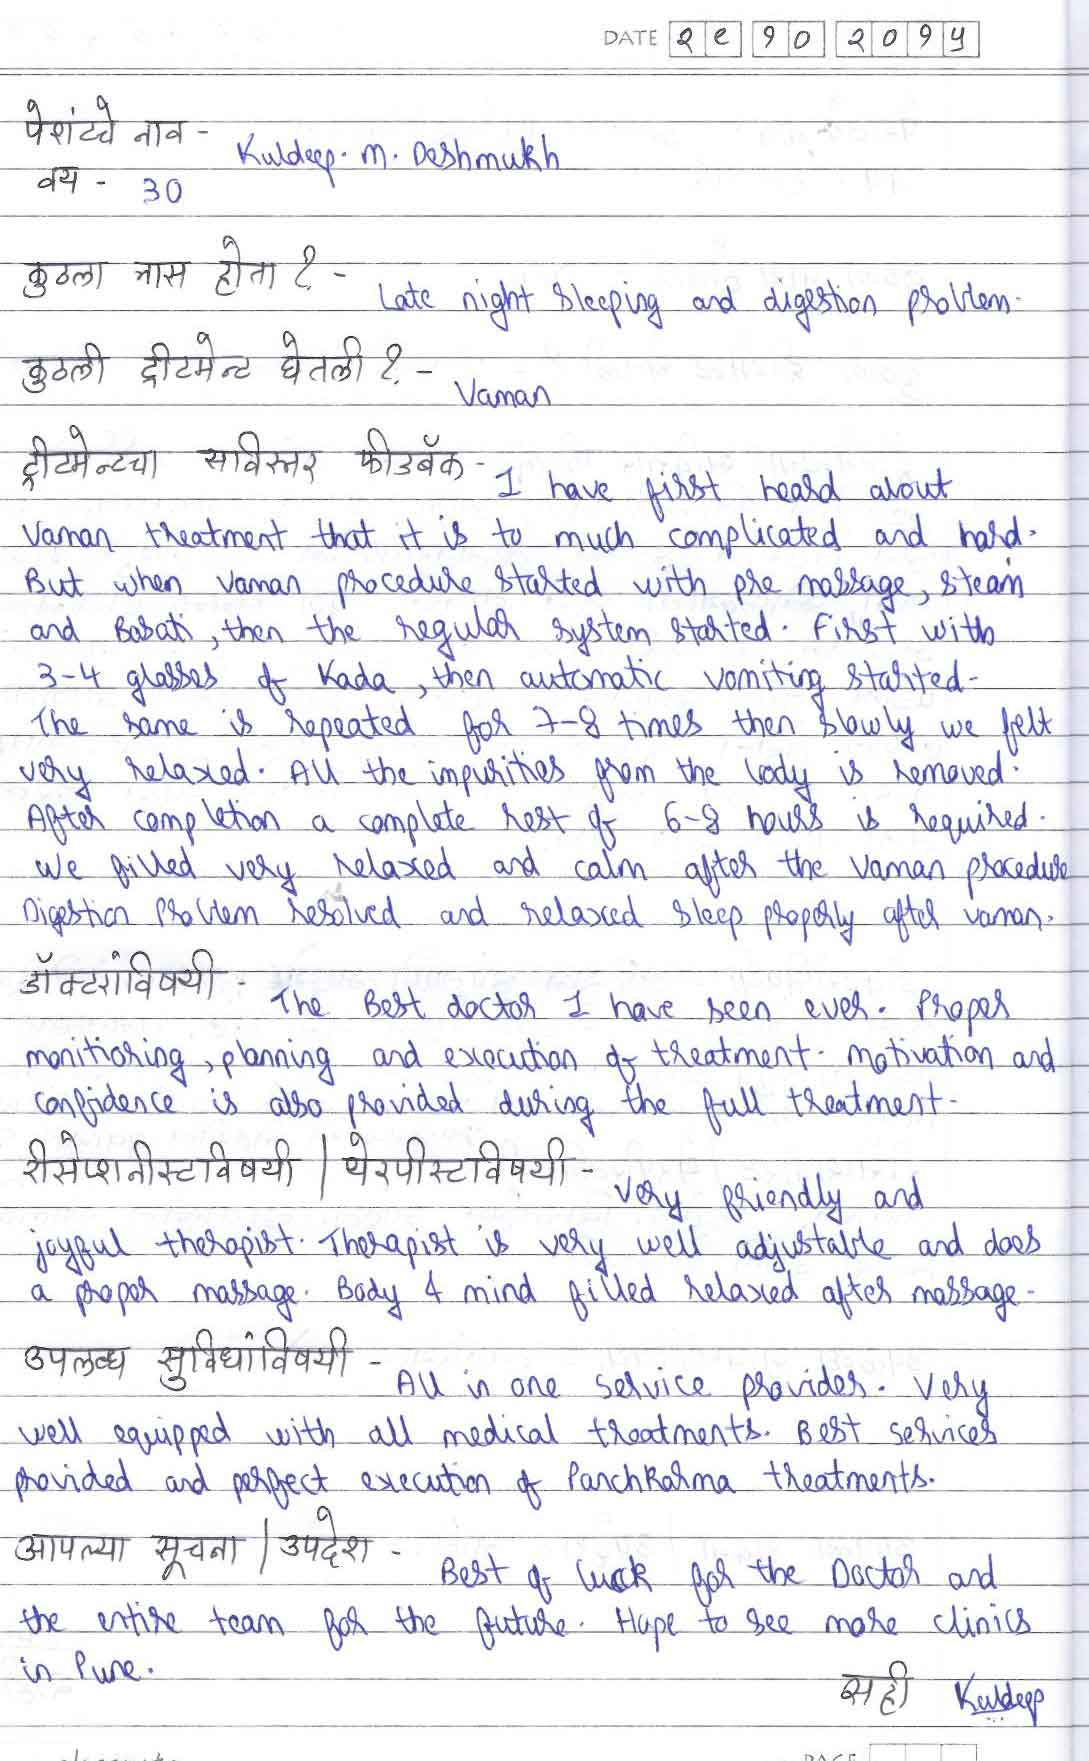 DATE २९ १० २०१५
पेशंटचे नाव - Kuldeep. M. Deshmukh
वय - 30
कुठला त्रास होता ? - Late night sleeping and digestion problem.
कुठली ट्रीटमेन्ट घेतली ? - Vaman
ट्रीटमेन्टचा सविस्तर फीडबॅक - I have first heard about
Vaman treatment that it is to much complicated and hard.
But when Vaman procedure started with pre massage, steam
and Basati, then the regular system started. First with
3-4 glasses of Kada, then automatic vomiting started.
The same is repeated for 7-8 times then slowly we felt
very relaxed. All the impurities from the body is removed.
After completion a complete rest of 6-8 hours is required.
We filled very relaxed and calm after the Vaman procedure
Digestion Problem resolved and relaxed sleep properly after vaman.
डॉक्टरांविषयी - The Best doctor I have seen ever. Proper
monitioring, planning and execution of treatment. Motivation and
confidence is also provided during the full treatment.
रीसेप्शनीस्टविषयी / थेरपीस्टविषयी - Very friendly and
joyful therapist. Therapist is very well adjustable and does
a proper massage. Body & mind filled relaxed after massage.
उपलब्ध सुविधांविषयी - All in one service provider. Very
well equipped with all medical treatments. Best services
provided and perfect execution of Panchkarma treatments.
आपल्या सूचना / उपदेश - Best of luck for the Doctor and
the entire team for the future. Hope to see more clinics
in Pune.
सही Kuldeep
PAGE